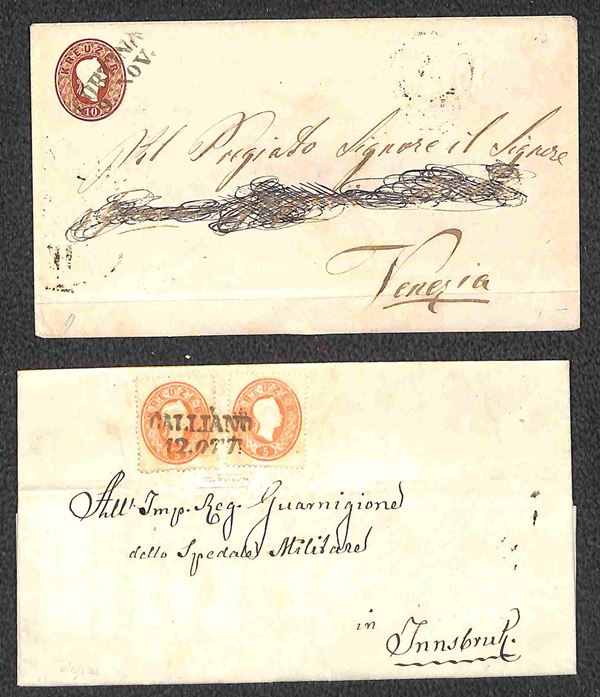 KREUZER
10
9. NOV.
All Pregiato Signore il Signore
Venezia
KREUZER
KREUZER
CALLIANO
12. OTT.
5
5
All'. Imp. Reg. Guarnigione
dello Spedale Militare
in
Innsbruk.